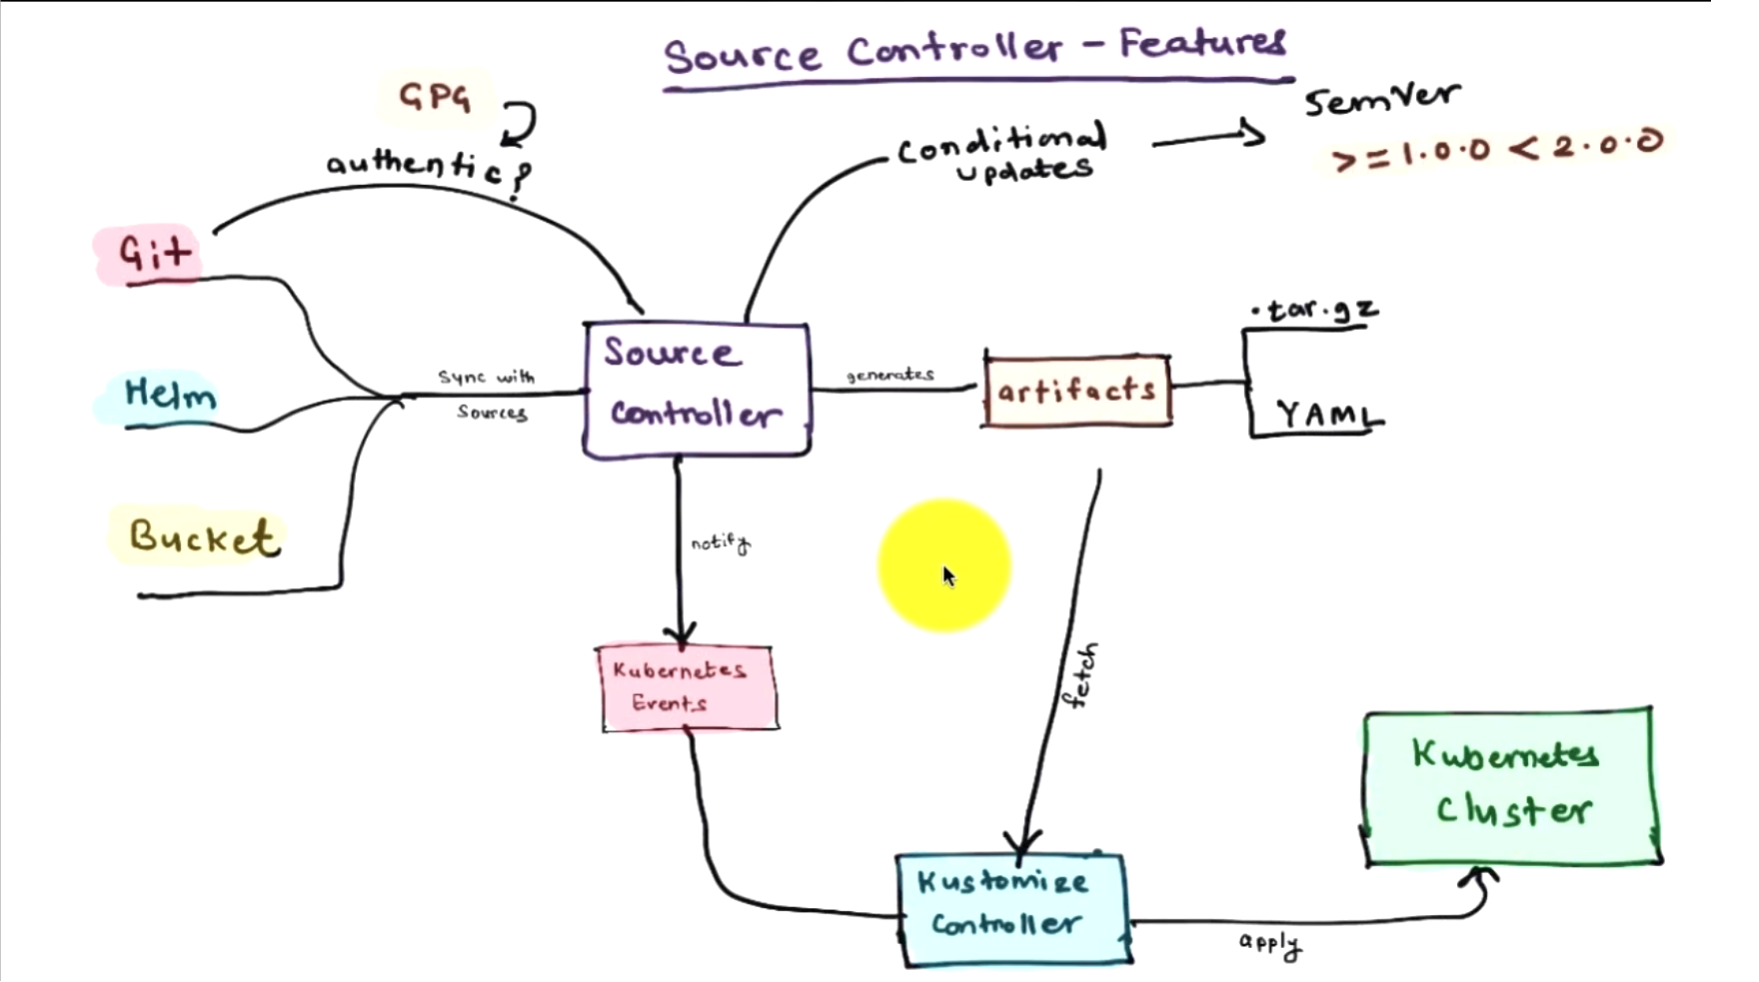 Source Controller - Features
GPG
authentic?
Conditional
updates
SemVer
>=1.0.0 < 2.0.0
Git
Helm
Bucket
Sync with
Sources
Source
Controller
generates
artifacts
.tar.gz
YAML
notify
Kubernetes
Events
fetch
Kustomize
Controller
apply
Kubernetes
Cluster